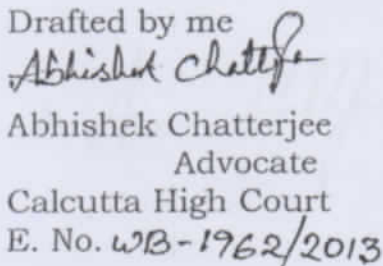 Drafted by me
Abhishek Chatterjee
Abhishek Chatterjee
Advocate
Calcutta High Court
E. No. WB-1962/2013